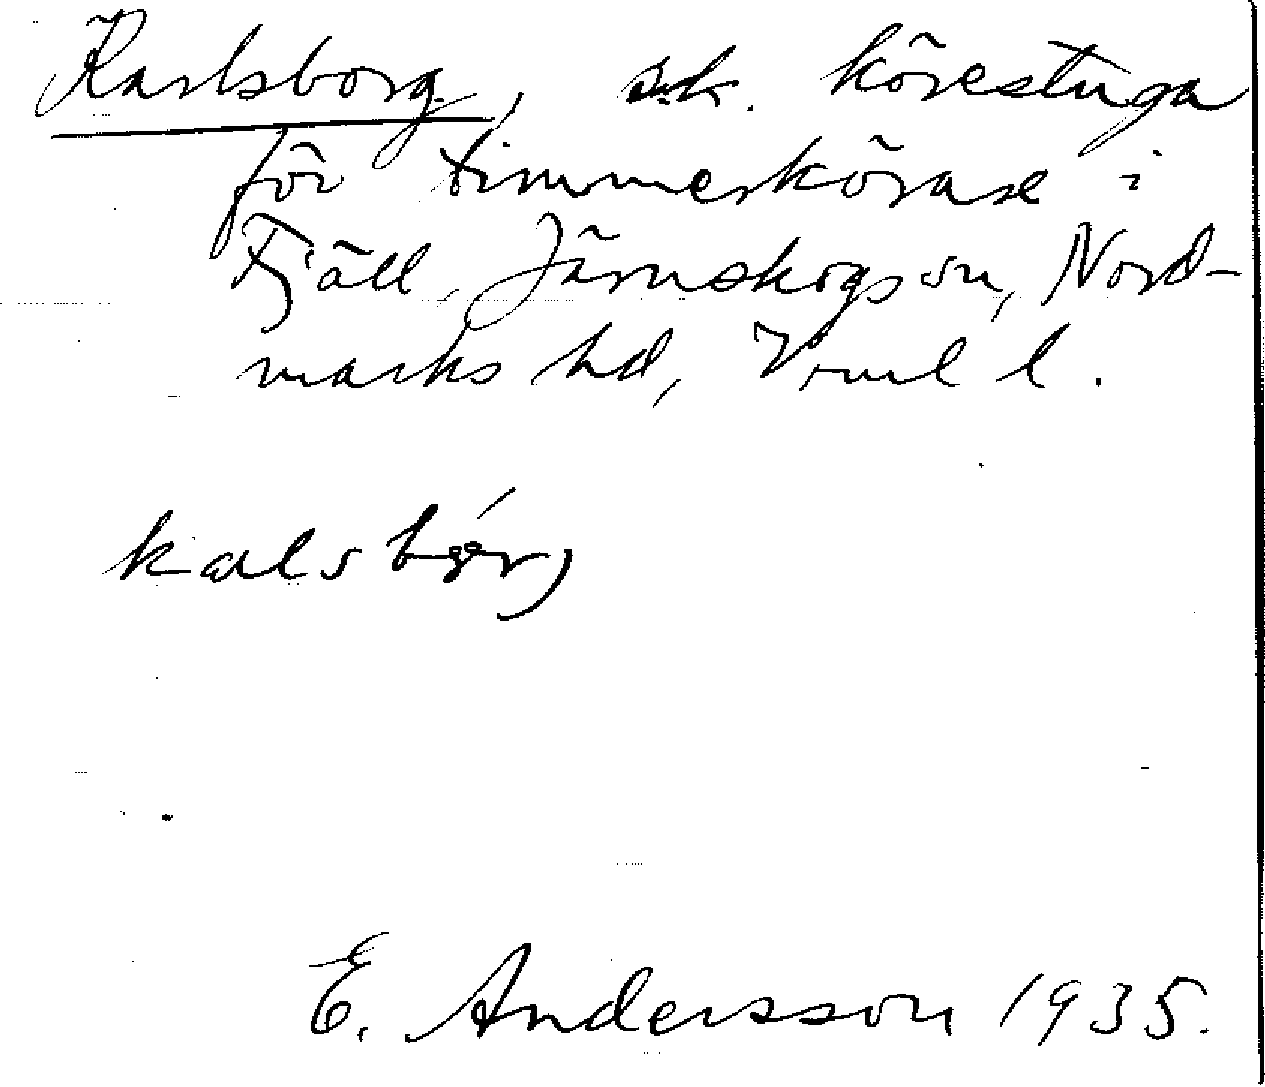 Karlsborg, s.k. körestuga
för timmerkörare i
Fjäll, Järnskogs sn, Nord-
marks hd, Vrml l.
E. Andersson 1935.